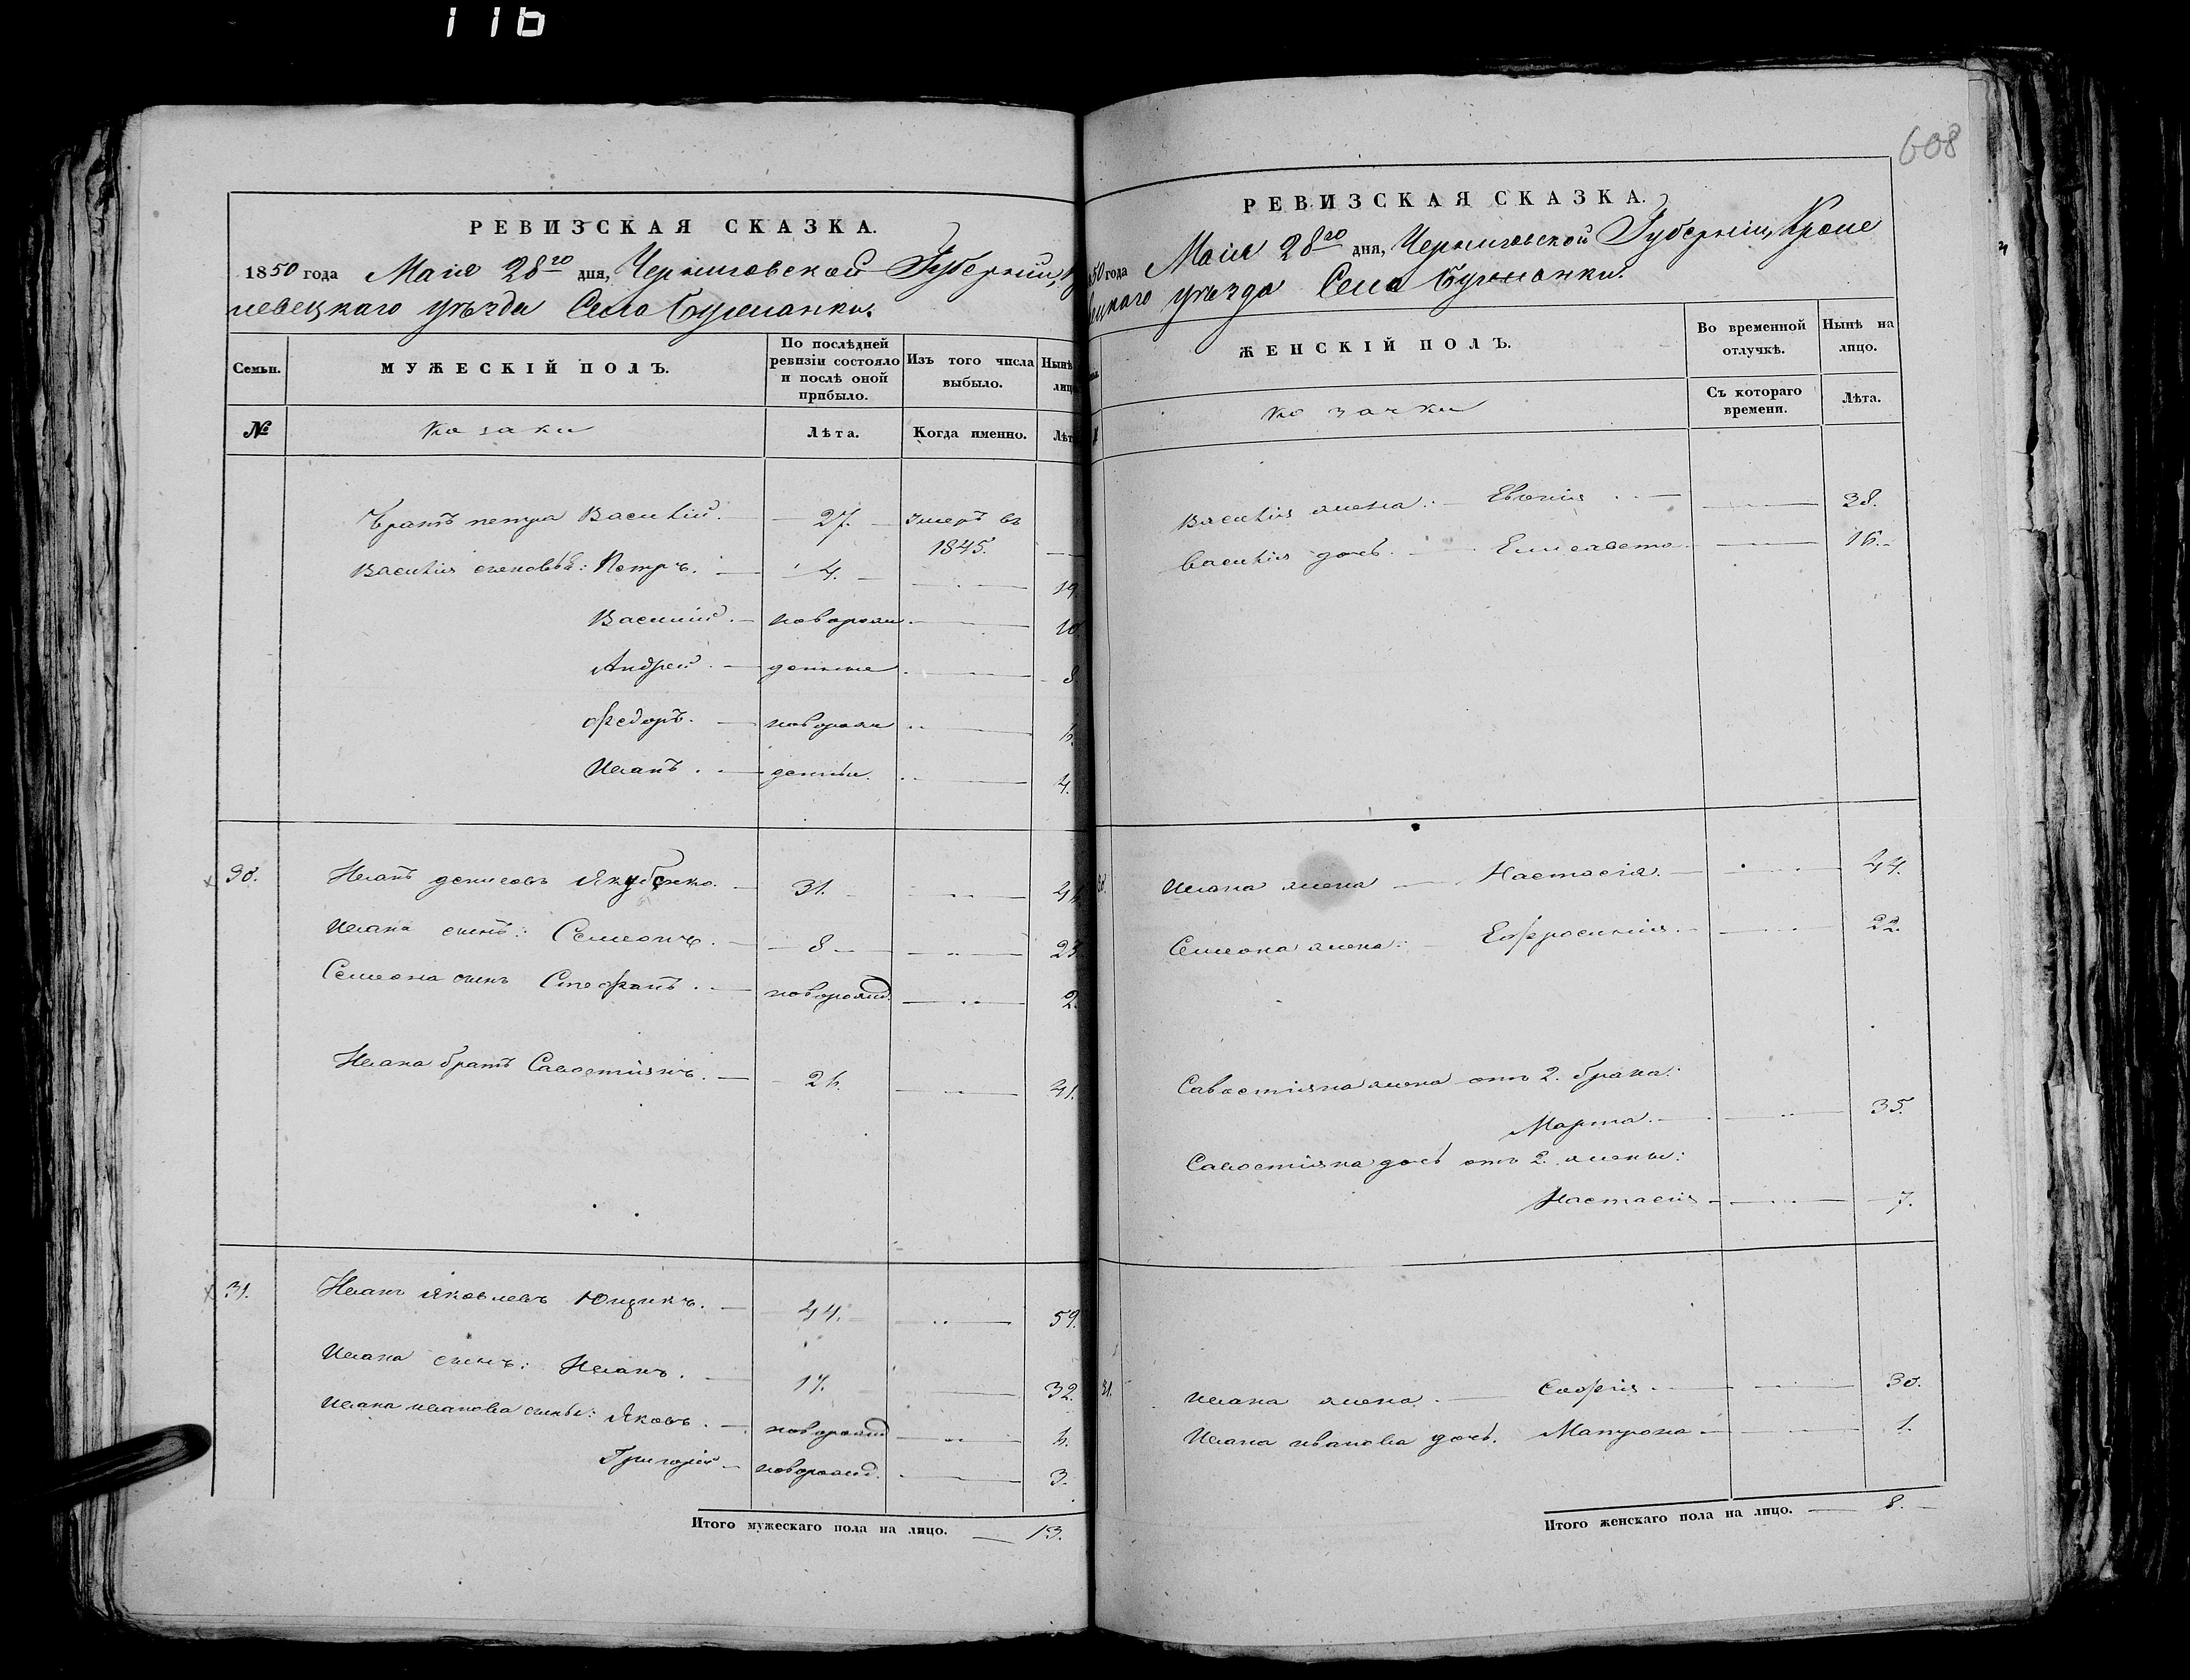 116
РЕВИЗСКАЯ СКАЗКА.
1850 года Маія 28го дня, Черниговской Губерніи,
певецкаго уѣзда Села
Семьи.
МУЖЕСКІЙ ПОЛЪ.
По послѣдней ревизіи состояло и послѣ оной прибыло.
Изъ того числа выбыло.
Нынѣ
лиц
№
козаки
Лѣта.
Когда именно.
Лѣт
Братъ петра Василій. 27. умеръ въ
1845.
Василія сыновья: Петръ. 4. 19.
Василий. новорож 10.
Андрей. денные 8.
Федоръ. новорож 6.
Иванъ. денны. 4.
30. Иванъ денисовъ Якубенко. 31. 46
Ивана сынъ: Семионъ. 8 23.
Семиона сынъ Стефанъ. новорожд. 2.
Ивана братъ Савостіянъ. 26. 41.
31. Иванъ Яковлевъ Ющикъ. 44. 59.
Ивана сынъ: Иванъ. 17. 32.
Ивана иванова сыны: Яковъ. новорожд 6.
Григорій новорожд. 3.
Итого мужескаго пола на лицо. 13.
608
РЕВИЗСКАЯ СКАЗКА.
850 года Маія 28го дня, Черниговской Губерніи, Кроле
ецкаго уѣзда Села
ЖЕНСКІЙ ПОЛЪ.
Во временной отлучкѣ.
Нынѣ на лицо.
козачки
Съ котораго времени.
Лѣта.
Василія жена. 38.
Василія дочь. Елисавета 16.
30. Ивана жена Настасія. 44.
Семиона жена: Ефросинія. 22.
Савостіяна жена отъ 2. брака:
Марта. 35.
Савостіяна дочь отъ 2. жены:
Настасія 7.
31. Ивана жена. Софія. 30.
Ивана иванова дочь. Матрона 1.
Итого женскаго пола на лицо. 8.